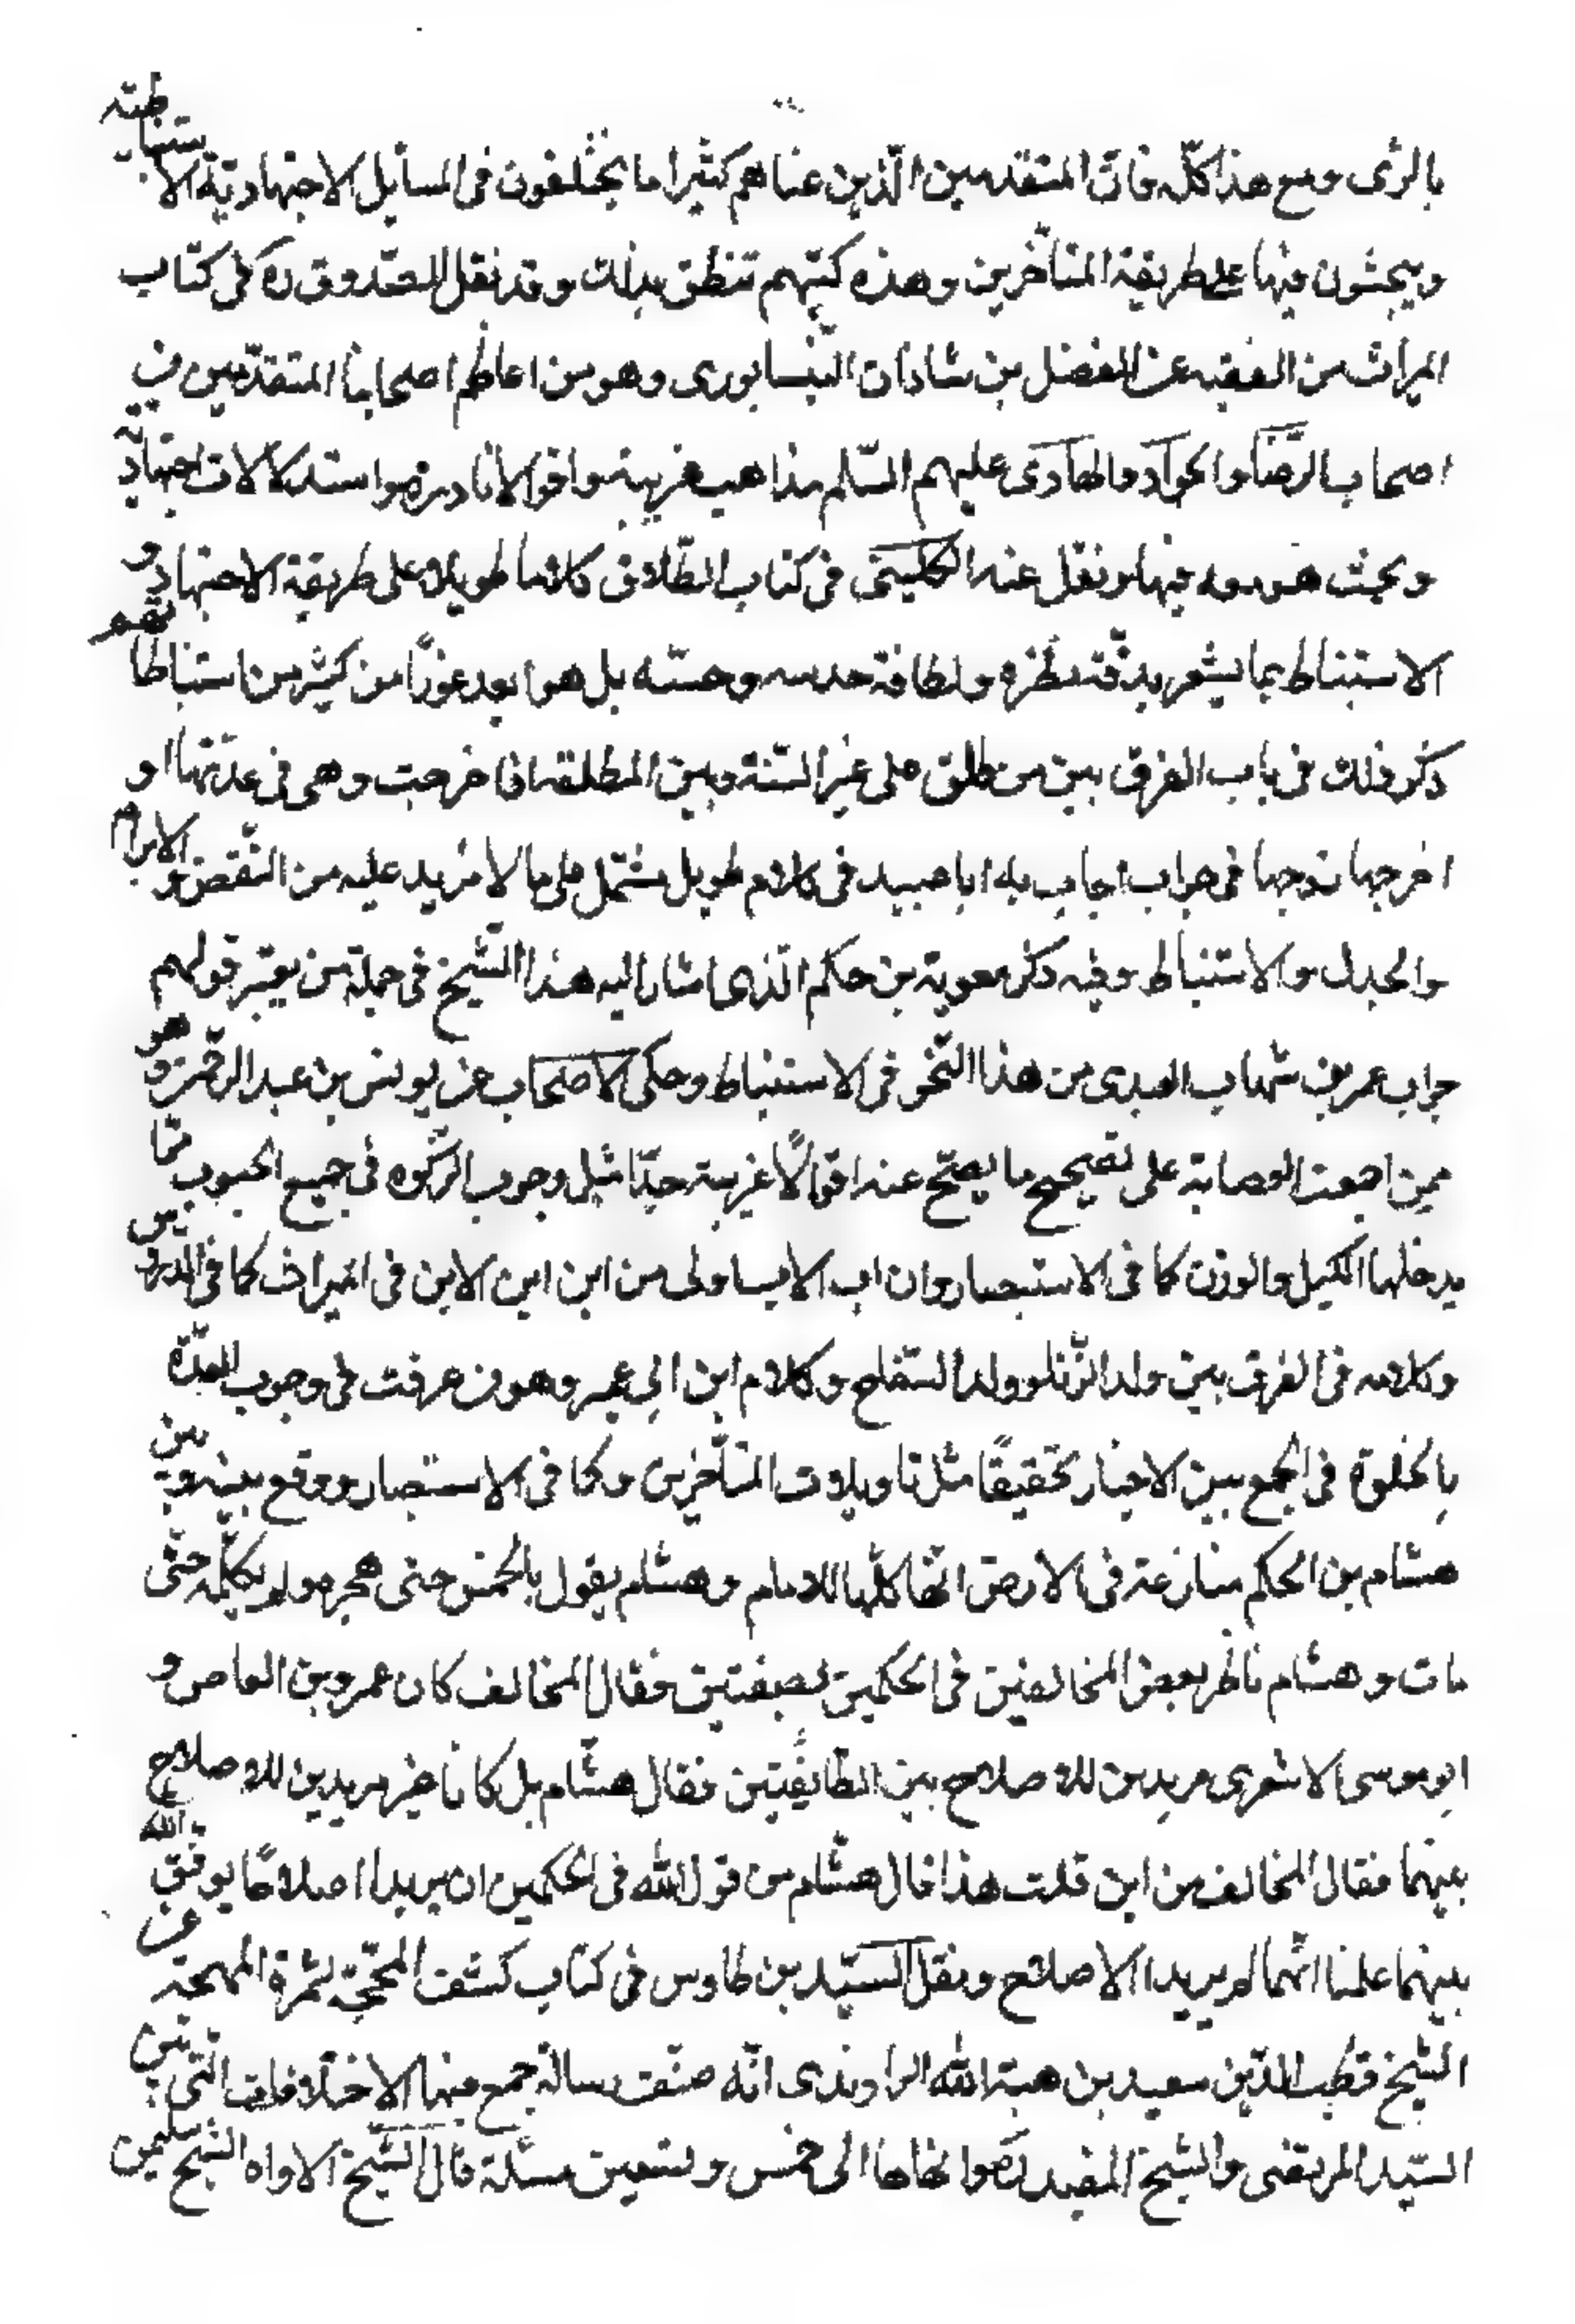 بالرأى ومع هذا كلّه فانّ المتقدمين الّذين عناهم كثيرا ما يختلفون فى المسايل الاجتهاديّة الاستنباطيّة
ويبحثون فيها على طريقة المتأخّرين وهذه كتبهم تنطق بذلك وقد نقل الصّدوق ره فى كتاب
الميراث من الفقيه عن الفضل بن شاذان النّيسابورى وهو من اعاظم اصحابنا المتقدّمين فى
اصحاب الرّضا والجواد والهادى عليهم السّلم مذاهب غريبة واقوالا نادرة واستدلالات اجتهاديّة
وبحث هو معه فيها ونقل عنه الكلينى فى كتاب الطّلاق كلاما طويلا على طريقة الاجتهاد و
الاستنباط بما يشعر بدقّة نظره ولطافة حدسه وحسّه بل هو ابعد غورًا من كثير من استنباطاتهم
ذكر ذلك فى باب الفرق بين من طلق على غير السّنة وبين المطلقة اذا خرجت وهى فى عدّتها او
اخرجها زوجها فى جواب اجاب به ابا عبيد فى كلام طويل مشتمل على ما لا مزيد عليه من النّقض والابرام
والجدل والاستنباط وفيه ذكر معوية بن حكم الّذى اشار اليه هذا الشّيخ فى جملة من يعتبر قولهم
جواب عمر بن شهاب العبدى من هذا النّحو فى الاستنباط وحكى الاصحاب عن يونس بن عبد الرّحمن وهو
ممن اجمعت العصابة على تصحيح ما يصحّ عنه اقوالًا غريبة جدّا مثل وجوب الزّكوة فى جميع الحبوب ممّا
يدخلها الكيل والوزن كما فى الاستبصار وان اب الاب اولى من ابن ابن الابن فى الميراث كما فى الدروس
وكلامه فى الفرق بين ولد الزّنا وولد السّفاح وكلام ابن ابى عمير وهو من عرفت فى وجوب العدّة
بالخلوة فى الجمع بين الاخبار تحقيقًا مثل تاويلات المتأخّرين وكما فى الاستبصار ووقع بينه وبين
هشام بن الحكم منازعة فى الارض انّها كلّها للامام وهشام يقول بالخمس حتى هجره ولم يكلّمه حتّى
مات وهشام ناظر بعض المخالفين فى الحكمين بصفّين فقال المخالف كان عمرو بن العاص و
ابو موسى الاشعرى مريدين للاصلاح بين الطّايفتين فقال هشّام بل كانا غير مريدين للاصلاح
بينهما فقال المخالف من اين قلت هذا قال هشّام من قول الله فى الحكمين ان يريدا اصلاحًا يوفّق الله
بينهما علمنا انّهما لم يريدا الاصلاح ونقل السّيّد بن طاوس فى كتاب كشف المحجّة لثمرة المهجة عن
الشّيخ قطب الدّين سعيد بن هبة الله الراوندى انّه صنّف رسالة جمع فيها الاختلافات الّتى بين
السّيّد المرتضى والشّيخ المفيد انهاها الى خمس وتسعين مسئلة قال الشّيخ الاواه الشّيخ سليمن